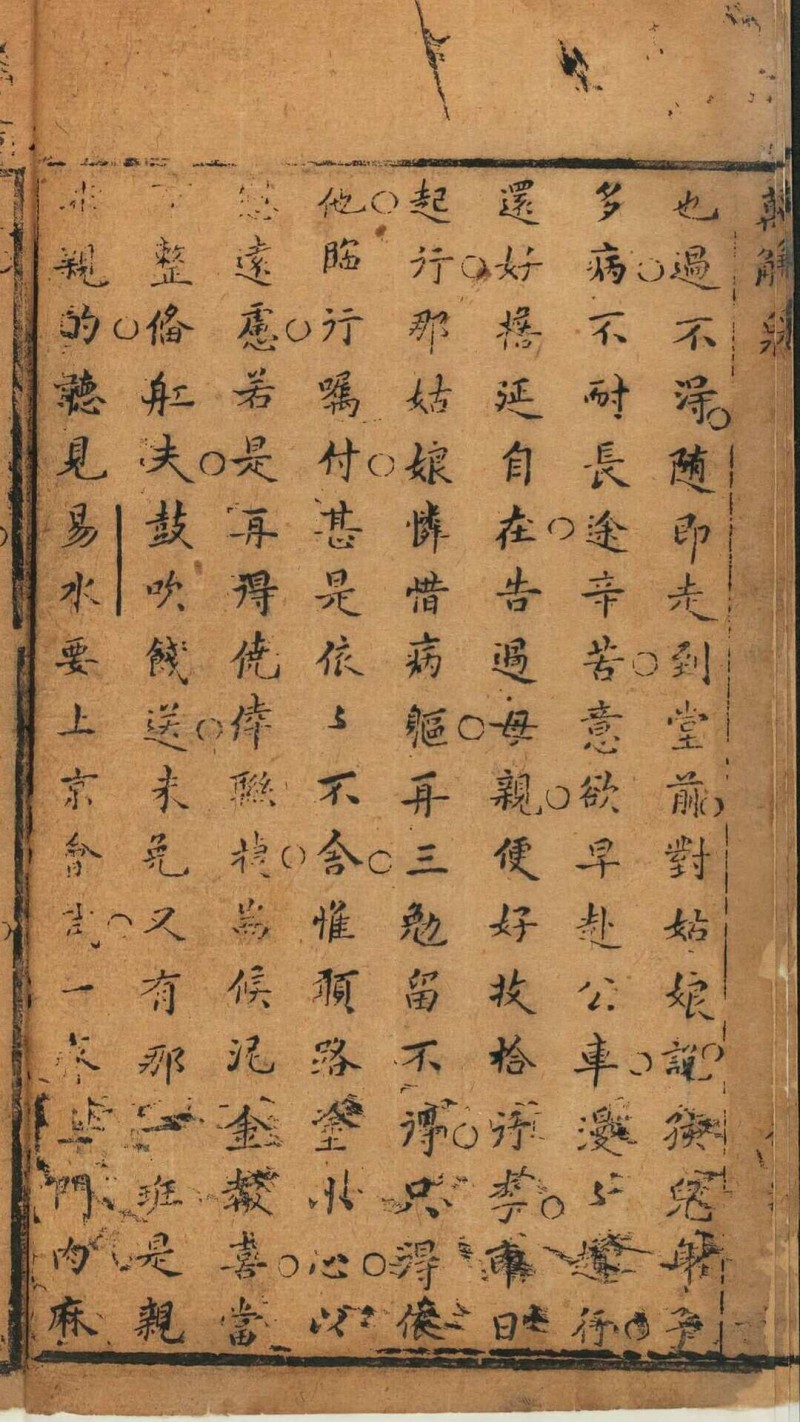 也過不得○随即走到堂前○對姑娘說○侄兒身子
多病○不耐長途辛苦○意欲早赴公車○漫〻趲行○
還好擔延自在○告過母親○便好收拾行李○日
起行○那姑娘憐惜病軀○再三勉留不得○只得依
他○臨行嘱付○甚是依〻不舍○惟願路塗小心○以
慰遠慮○若是再得僥倖聯捷○耑候泥金報喜○當
下整俻舡夫○鼓吹餞送○未免又有那一班是親
非親的○聽見易水要上京會試○一齊上門肉麻